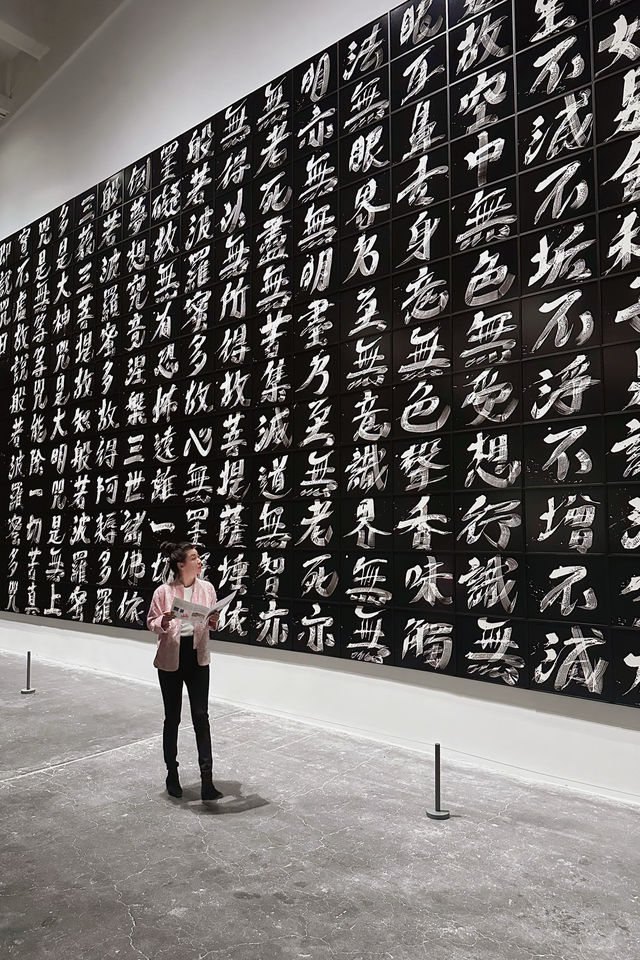 生不滅不垢不淨不增不減
故空中無色無受想行識無
眼耳鼻舌身意無色聲香味觸
法無眼界乃至無意識界無無
明亦無無明盡乃至無老死亦
無老死盡無苦集滅道無智亦
無得以無所得故菩提薩埵依
般若波羅蜜多故心無罣
罣礙故無有恐怖遠離一切
倒夢想究竟涅槃三世諸佛依
般若波羅蜜多故得阿耨多羅
三藐三菩提故知般若波羅蜜
多是大神咒是大明咒是無上
咒是無等等咒能除一切苦真
實不虛故說般若波羅蜜多咒
即說咒曰